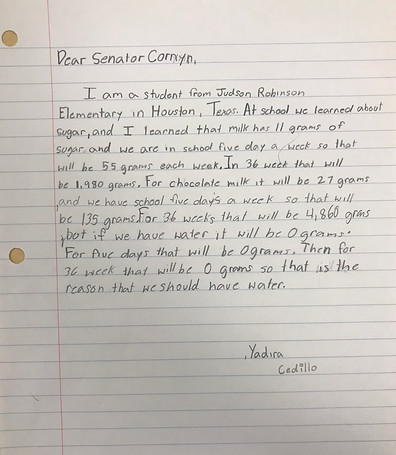 Dear Senator Cornyn,
I am a student from Judson Robinson
Elementary in Houston, Texas. At school we learned about
sugar, and I learned that milk has 11 grams of
sugar and we are in school five day a week so that
will be 55 grams each week. In 36 week that will
be 1,980 grams. For chocolate milk it will be 27 grams
and we have school five day's a week so that will
be 135 grams. For 36 weeks that will be 4,860 grams
, but if we have water it will be 0 grams.
For five days that will be 0 grams. Then for
36 week that will be 0 grams so that is the
reason that we should have water.
Yadira
Cedillo